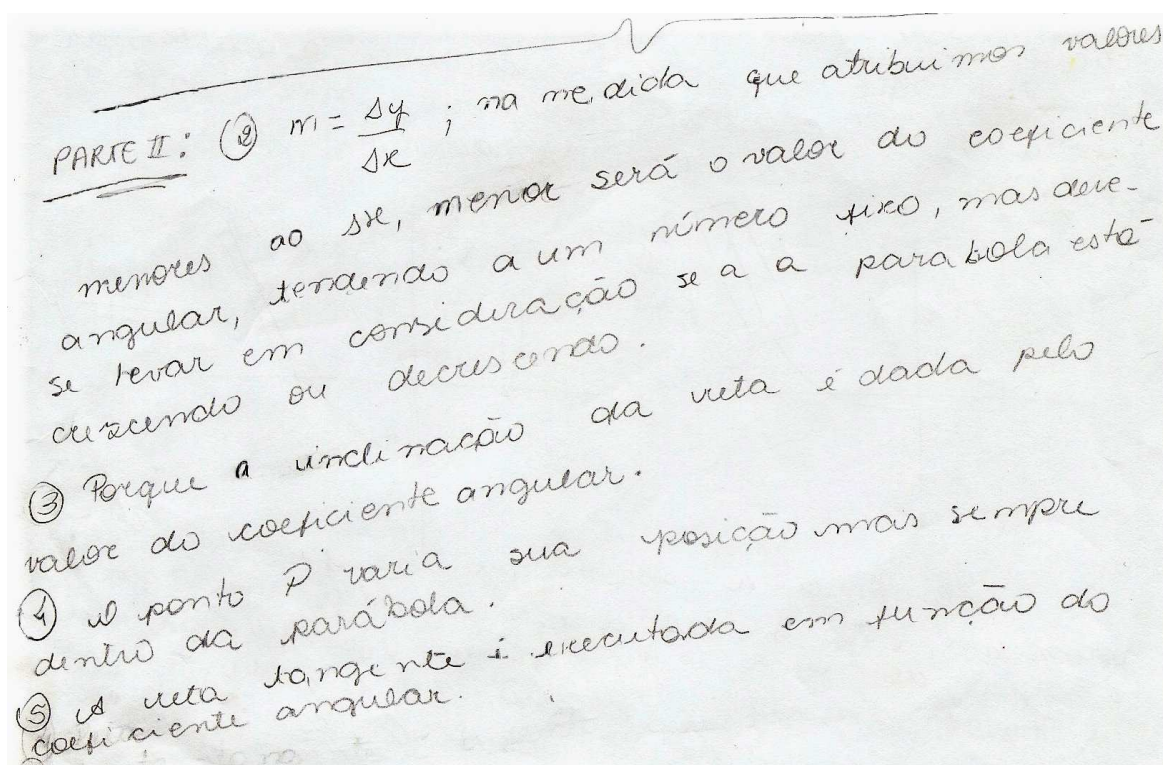 PARTE II: ② m = Δy/Δx ; na medida que atribuimos valores
menores ao Δx, menor será o valor do coeficiente
angular, tendendo a um número fixo, mas deve-
se levar em consideração se a a parabola está
crescendo ou decrescendo.
③ Porque a inclinação da reta é dada pelo
valor do coeficiente angular.
④ O ponto P varia sua posição mas sempre
dentro da parábola.
⑤ A reta tangente é executada em função do
coeficiente angular.